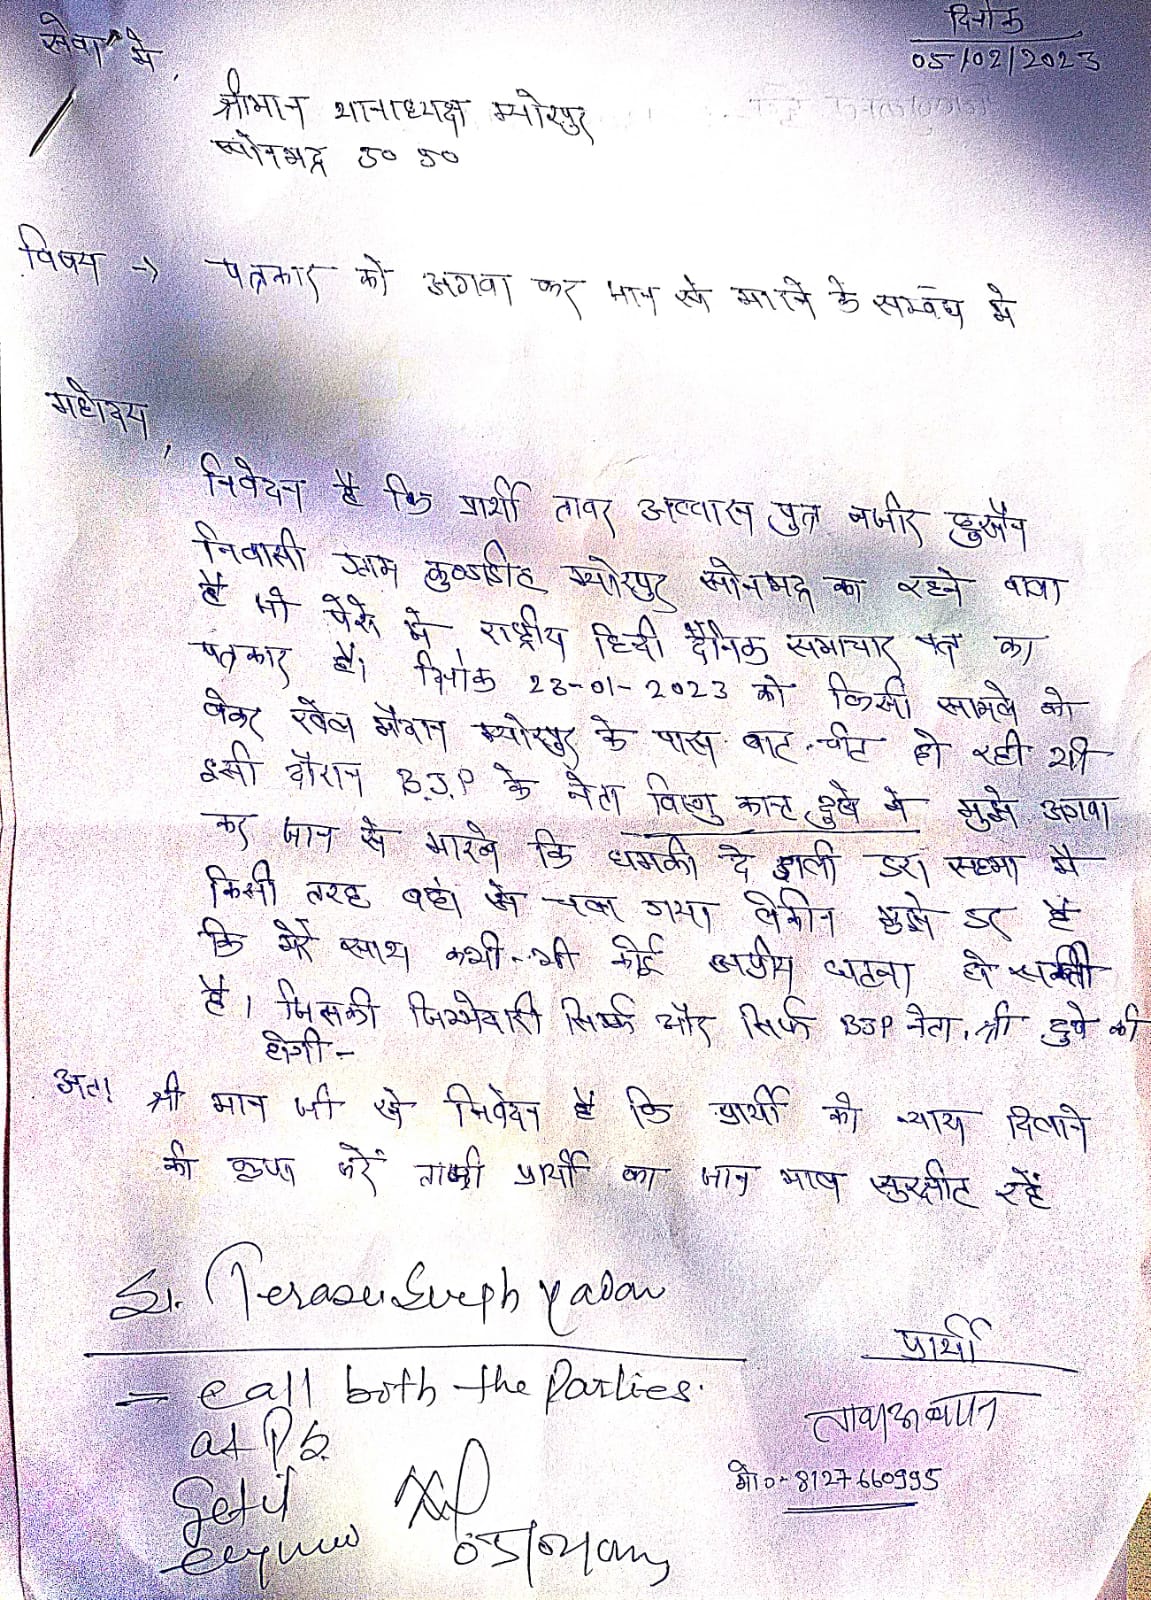 सेवा में,
दिनांक
05/02/2023
श्रीमान थानाध्यक्ष म्योरपुर
सोनभद्र उ० प्र०
विषय -> पत्रकार को अगवा कर जान से मारने के सम्बंध में
महोदय,
निवेदन है कि प्रार्थी अब्बास पुत्र नजीर हुसैन
निवासी ग्राम कुण्डडीह म्योरपुर सोनभद्र का रहने वाला
है जो पेशे में राष्ट्रीय हिन्दी दैनिक समाचार पत्र का
पत्रकार है। दिनांक 23-01-2023 को किसी मामले को
लेकर खेल मैदान म्योरपुर के पास बाट-चीट हो रही थी
इसी दौरान B.J.P के नेता विष्णु कान्त दुबे ने मुझे अगवा
कर जान से मारने कि धमकी दे डाली डरा सहमा मै
किसी तरह वहां से चला गया लेकीन मुझे डर है
कि मेरे साथ कभी-भी कोई अप्रीय घटना हो सकती
है। जिसकी जिम्मेवारी सिर्फ और सिर्फ BJP नेता श्री दुबे की
होगी-
अतः श्री मान जी से निवेदन है कि प्रार्थी को न्याय दिलाने
की कृपा करें ताकी प्रार्थी का जान माल सुरक्षीट रहें
Yadav
= call both the Parties.
at P.S.
प्रार्थी
मो०- 8127660995